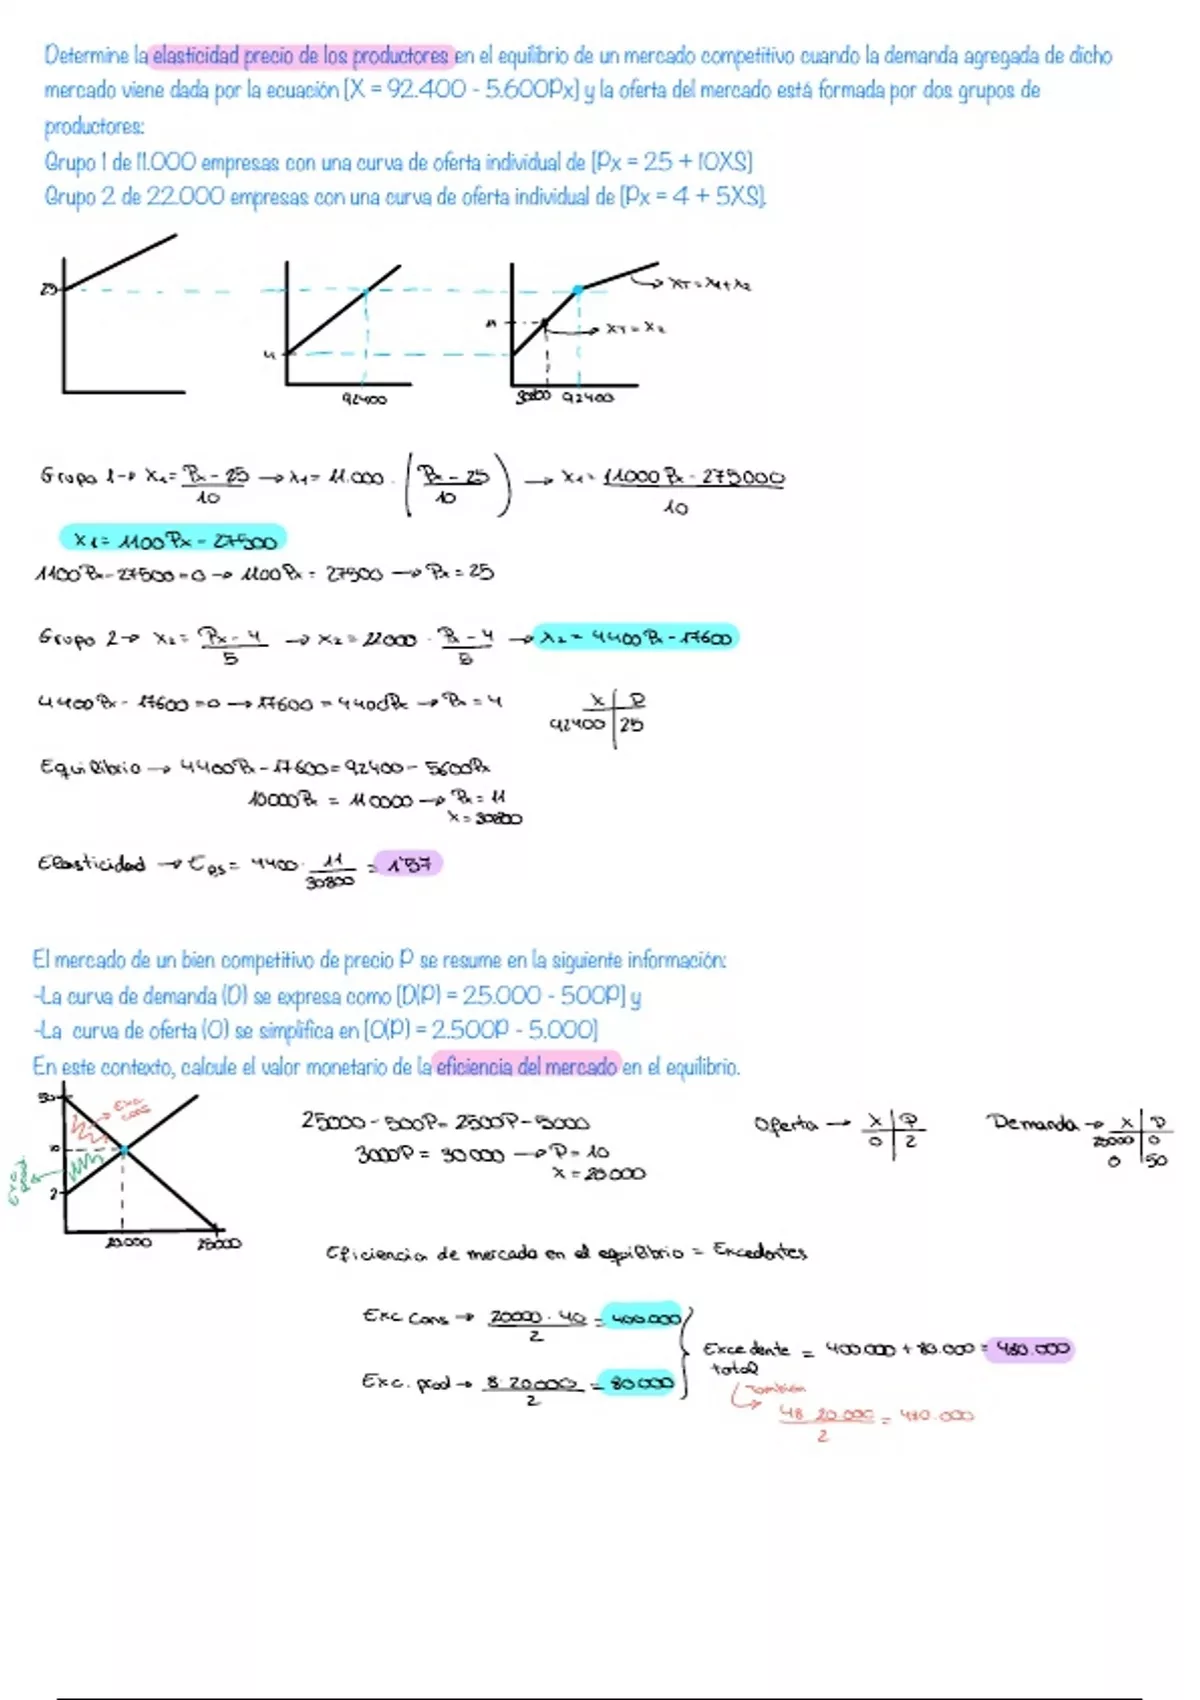 Determine la elasticidad precio de los productores en el equilibrio de un mercado competitivo cuando la demanda agregada de dicho
mercado viene dada por la ecuación [X = 92.400 - 5.600Px] y la oferta del mercado está formada por dos grupos de
productores:
Grupo 1 de 11.000 empresas con una curva de oferta individual de [Px = 25 + 10XS]
Grupo 2 de 22.000 empresas con una curva de oferta individual de [Px = 4 + 5XS].
25
4
92400
11
XT = X1 + X2
XT = X2
30800 92400
Grupo 1 → X1 = Px - 25 / 10 → X1 = 11.000 · (Px - 25 / 10) → X1 = 11000 Px - 275000 / 10
X1 = 1100 Px - 27500
1100 Px - 27500 = 0 → 1100 Px = 27500 → Px = 25
Grupo 2 → X2 = Px - 4 / 5 → X2 = 22000 · Px - 4 / 5 → X2 = 4400 Px - 17600
4400 Px - 17600 = 0 → 17600 = 4400 Px → Px = 4
X | P
92400 | 25
Equilibrio → 4400 Px - 17600 = 92400 - 5600 Px
10000 Px = 110000 → Px = 11
X = 30800
Elasticidad → Eps = 4400 · 11 / 30800 = 1'57
El mercado de un bien competitivo de precio P se resume en la siguiente información:
-La curva de demanda (D) se expresa como [D(P) = 25.000 - 500P] y
-La curva de oferta (O) se simplifica en [O(P) = 2.500P - 5.000]
En este contexto, calcule el valor monetario de la eficiencia del mercado en el equilibrio.
50
Exc. cons
10
Exc. prod
2
20.000 25000
25000 - 500P = 2500P - 5000
3000P = 30000 → P = 10
X = 20.000
Oferta → X | P
0 | 2
Demanda → X | P
25000 | 0
0 | 50
Eficiencia de mercado en el equilibrio = Excedentes
Exc Cons → 20000 · 40 / 2 = 400.000
Exc. prod → 8 · 20.000 / 2 = 80000
Excedente total = 400.000 + 80.000 = 480.000
También
48 · 20.000 / 2 = 480.000